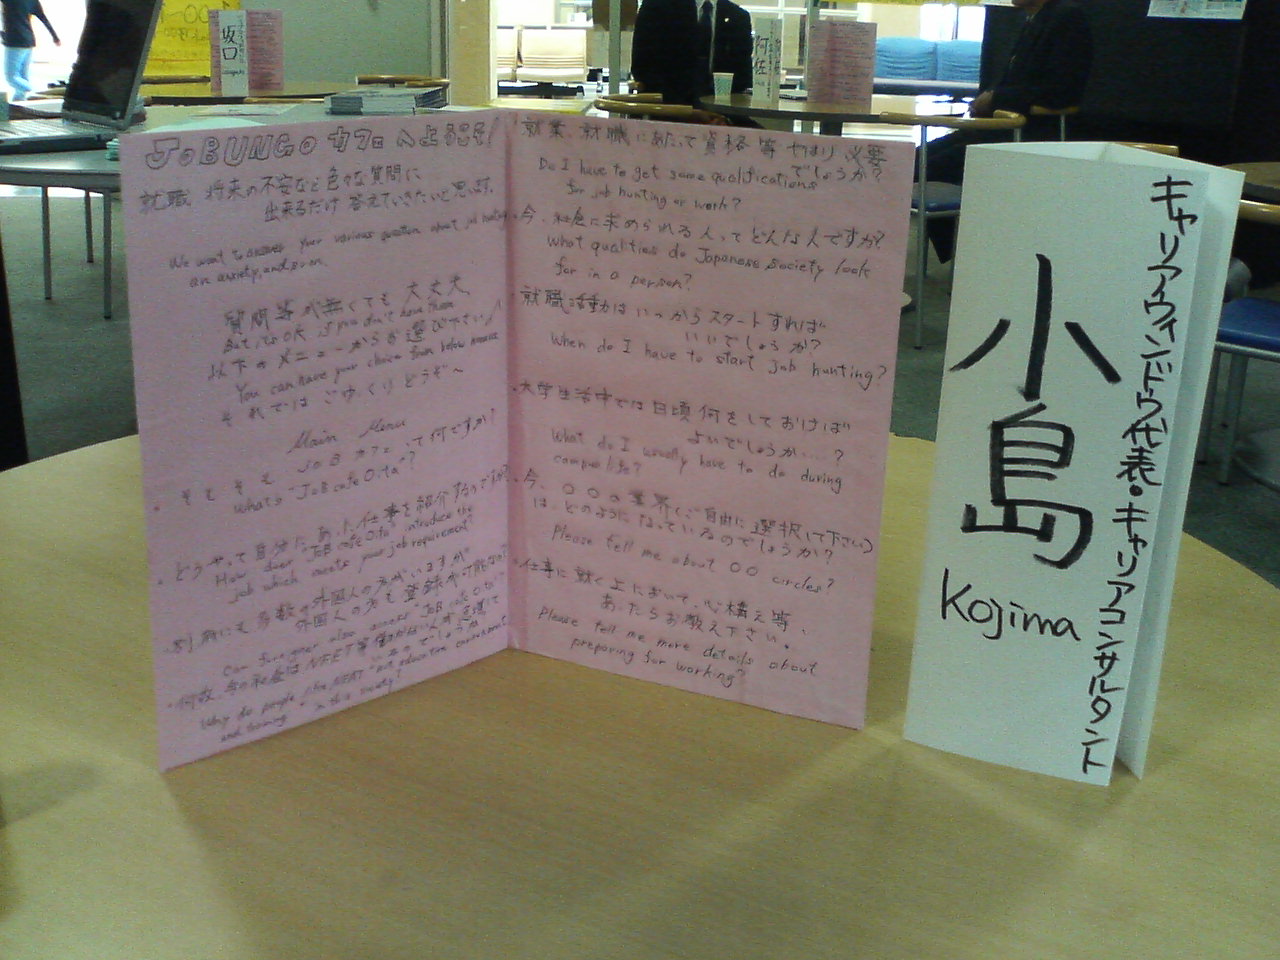 JoBUNGO カフェ へようこそ!
就職、将来の不安など色々な質問に
出来るだけ答えていきたいと思います。
We want to answer your various question about job hunting,
an anxiety, and so on.
質問等が無くても大丈夫。
But it's OK if you don't have them
以下のメニューからお選び下さい!
You can have your choice from below
それではごゆくりどうぞ〜
Main Menu
・そもそも JoB カフェって何ですか?
What's "JoB cafe Oita"?
・どうやって自分にあった仕事を紹介するのですか?
How does "JoB cafe Oita" introduce the
job which meets your job requirement?
・別府にも多数の外国人の方がいますが
外国人の方も登録は可能なの?
Can foreigner also access "JoB cafe Oita"
・何故、今の社会はNEET等働かない人が
Why do people like "NEET"
and training" in this society?
就業、就職にあたって資格等やはり必要
でしょうか?
Do I have to get some qualifications
for job hunting or work?
・今、社会に求められる人ってどんな人ですか?
What qualities do Japanese society look
for in a person?
・就職活動はいつからスタートすれば
いいでしょうか?
When do I have to start job hunting?
・大学生活中では日頃何をしておけば
よいでしょうか…?
What do I usually have to do during
campus life?
・今、〇〇の業界(ご自由に選択して下さい)
は、どのようになっているのでしょうか?
Please tell me about 〇〇 circles?
・仕事に就く上において、心構え等、
あったらお教え下さい。
Please tell me more details about
preparing for working?
キャリアウィンドウ代表・キャリアコンサルタント
小島
Kojima
坂口
阿佐